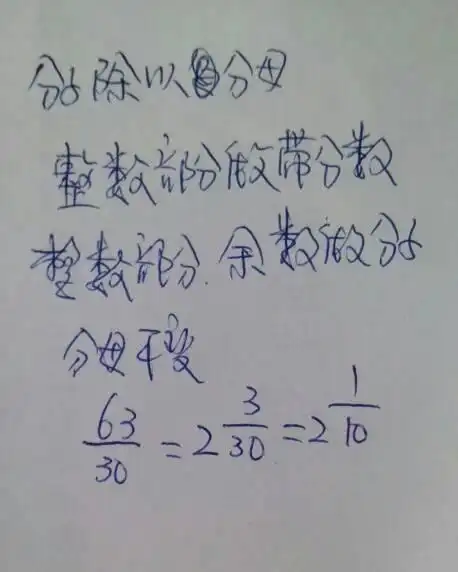 分子除以分母
整数部分做带分数
整数部分.余数做分子
分母不变
63/30 = 2 3/30 = 2 1/10